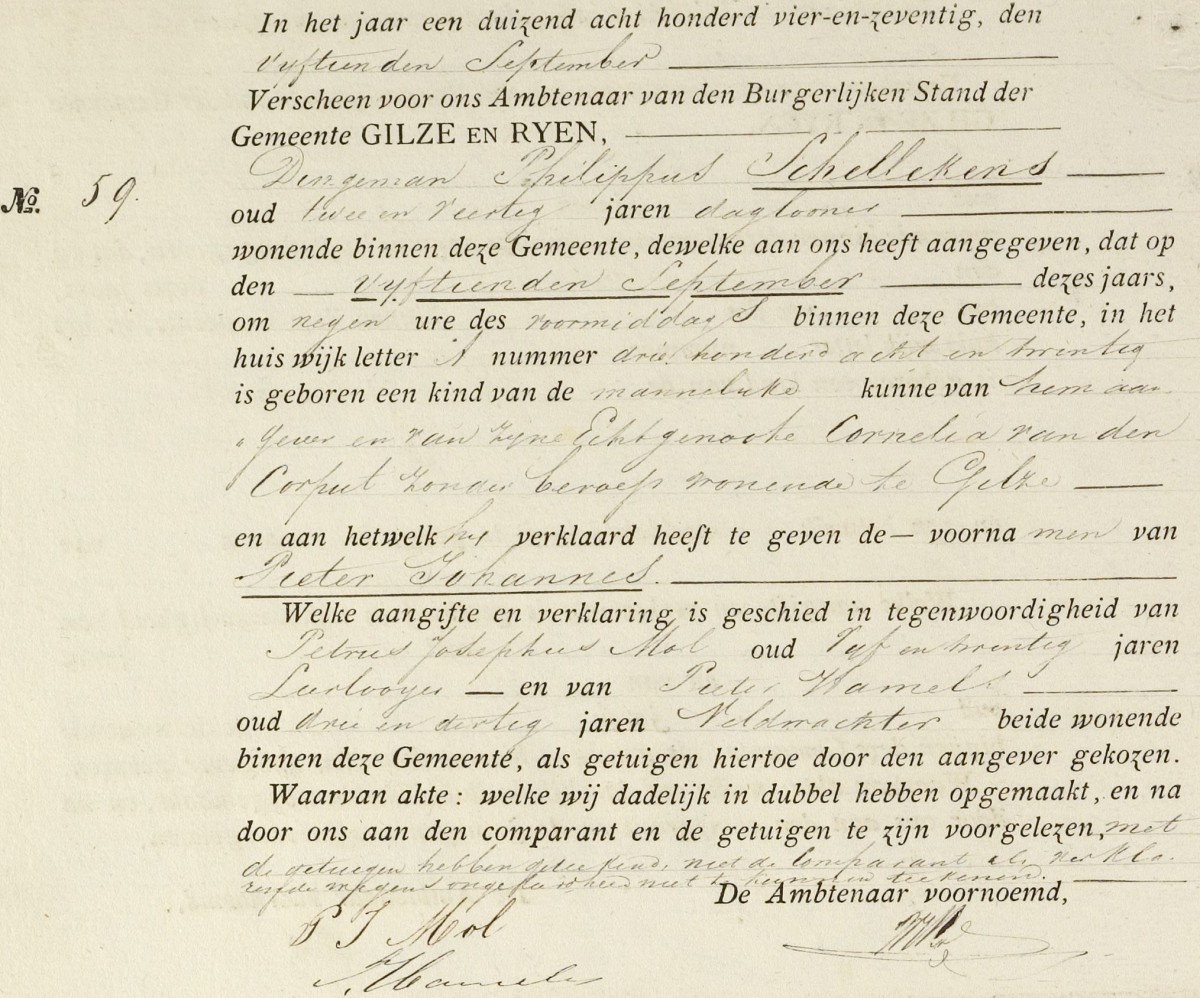 In het jaar een duizend acht honderd vier-en-zeventig, den
vyftienden September
Verscheen voor ons Ambtenaar van den Burgerlijken Stand der
Gemeente GILZE EN RYEN,
Dingeman Philippus Schellekens
No. 59.
oud twee en veertig jaren daglooner
wonende binnen deze Gemeente, dewelke aan ons heeft aangegeven, dat op
den vyftienden September dezes jaars,
om negen ure des voormiddags binnen deze Gemeente, in het
huis wijk letter A nummer drie honderd acht en twintig
is geboren een kind van de mannelijke kunne van hem aan
gever en van zyne Echtgenoote Cornelia van den
Corput zonder beroep wonende te Gilze
en aan hetwelk hy verklaard heeft te geven de voorna men van
Pieter Johannes.
Welke aangifte en verklaring is geschied in tegenwoordigheid van
Petrus Josephus Mol oud vyf en twintig jaren
Leerlooyer en van Pieter Hamels
oud drie en dertig jaren Veldwachter beide wonende
binnen deze Gemeente, als getuigen hiertoe door den aangever gekozen.
Waarvan akte: welke wij dadelijk in dubbel hebben opgemaakt, en na
door ons aan den comparant en de getuigen te zijn voorgelezen, met
de getuigen hebben geteekend, niet de Comparant als verkla-
rende wegens ongeleerdheid niet te kunnen teekenen.
De Ambtenaar voornoemd,
P J Mol
P. Hamels